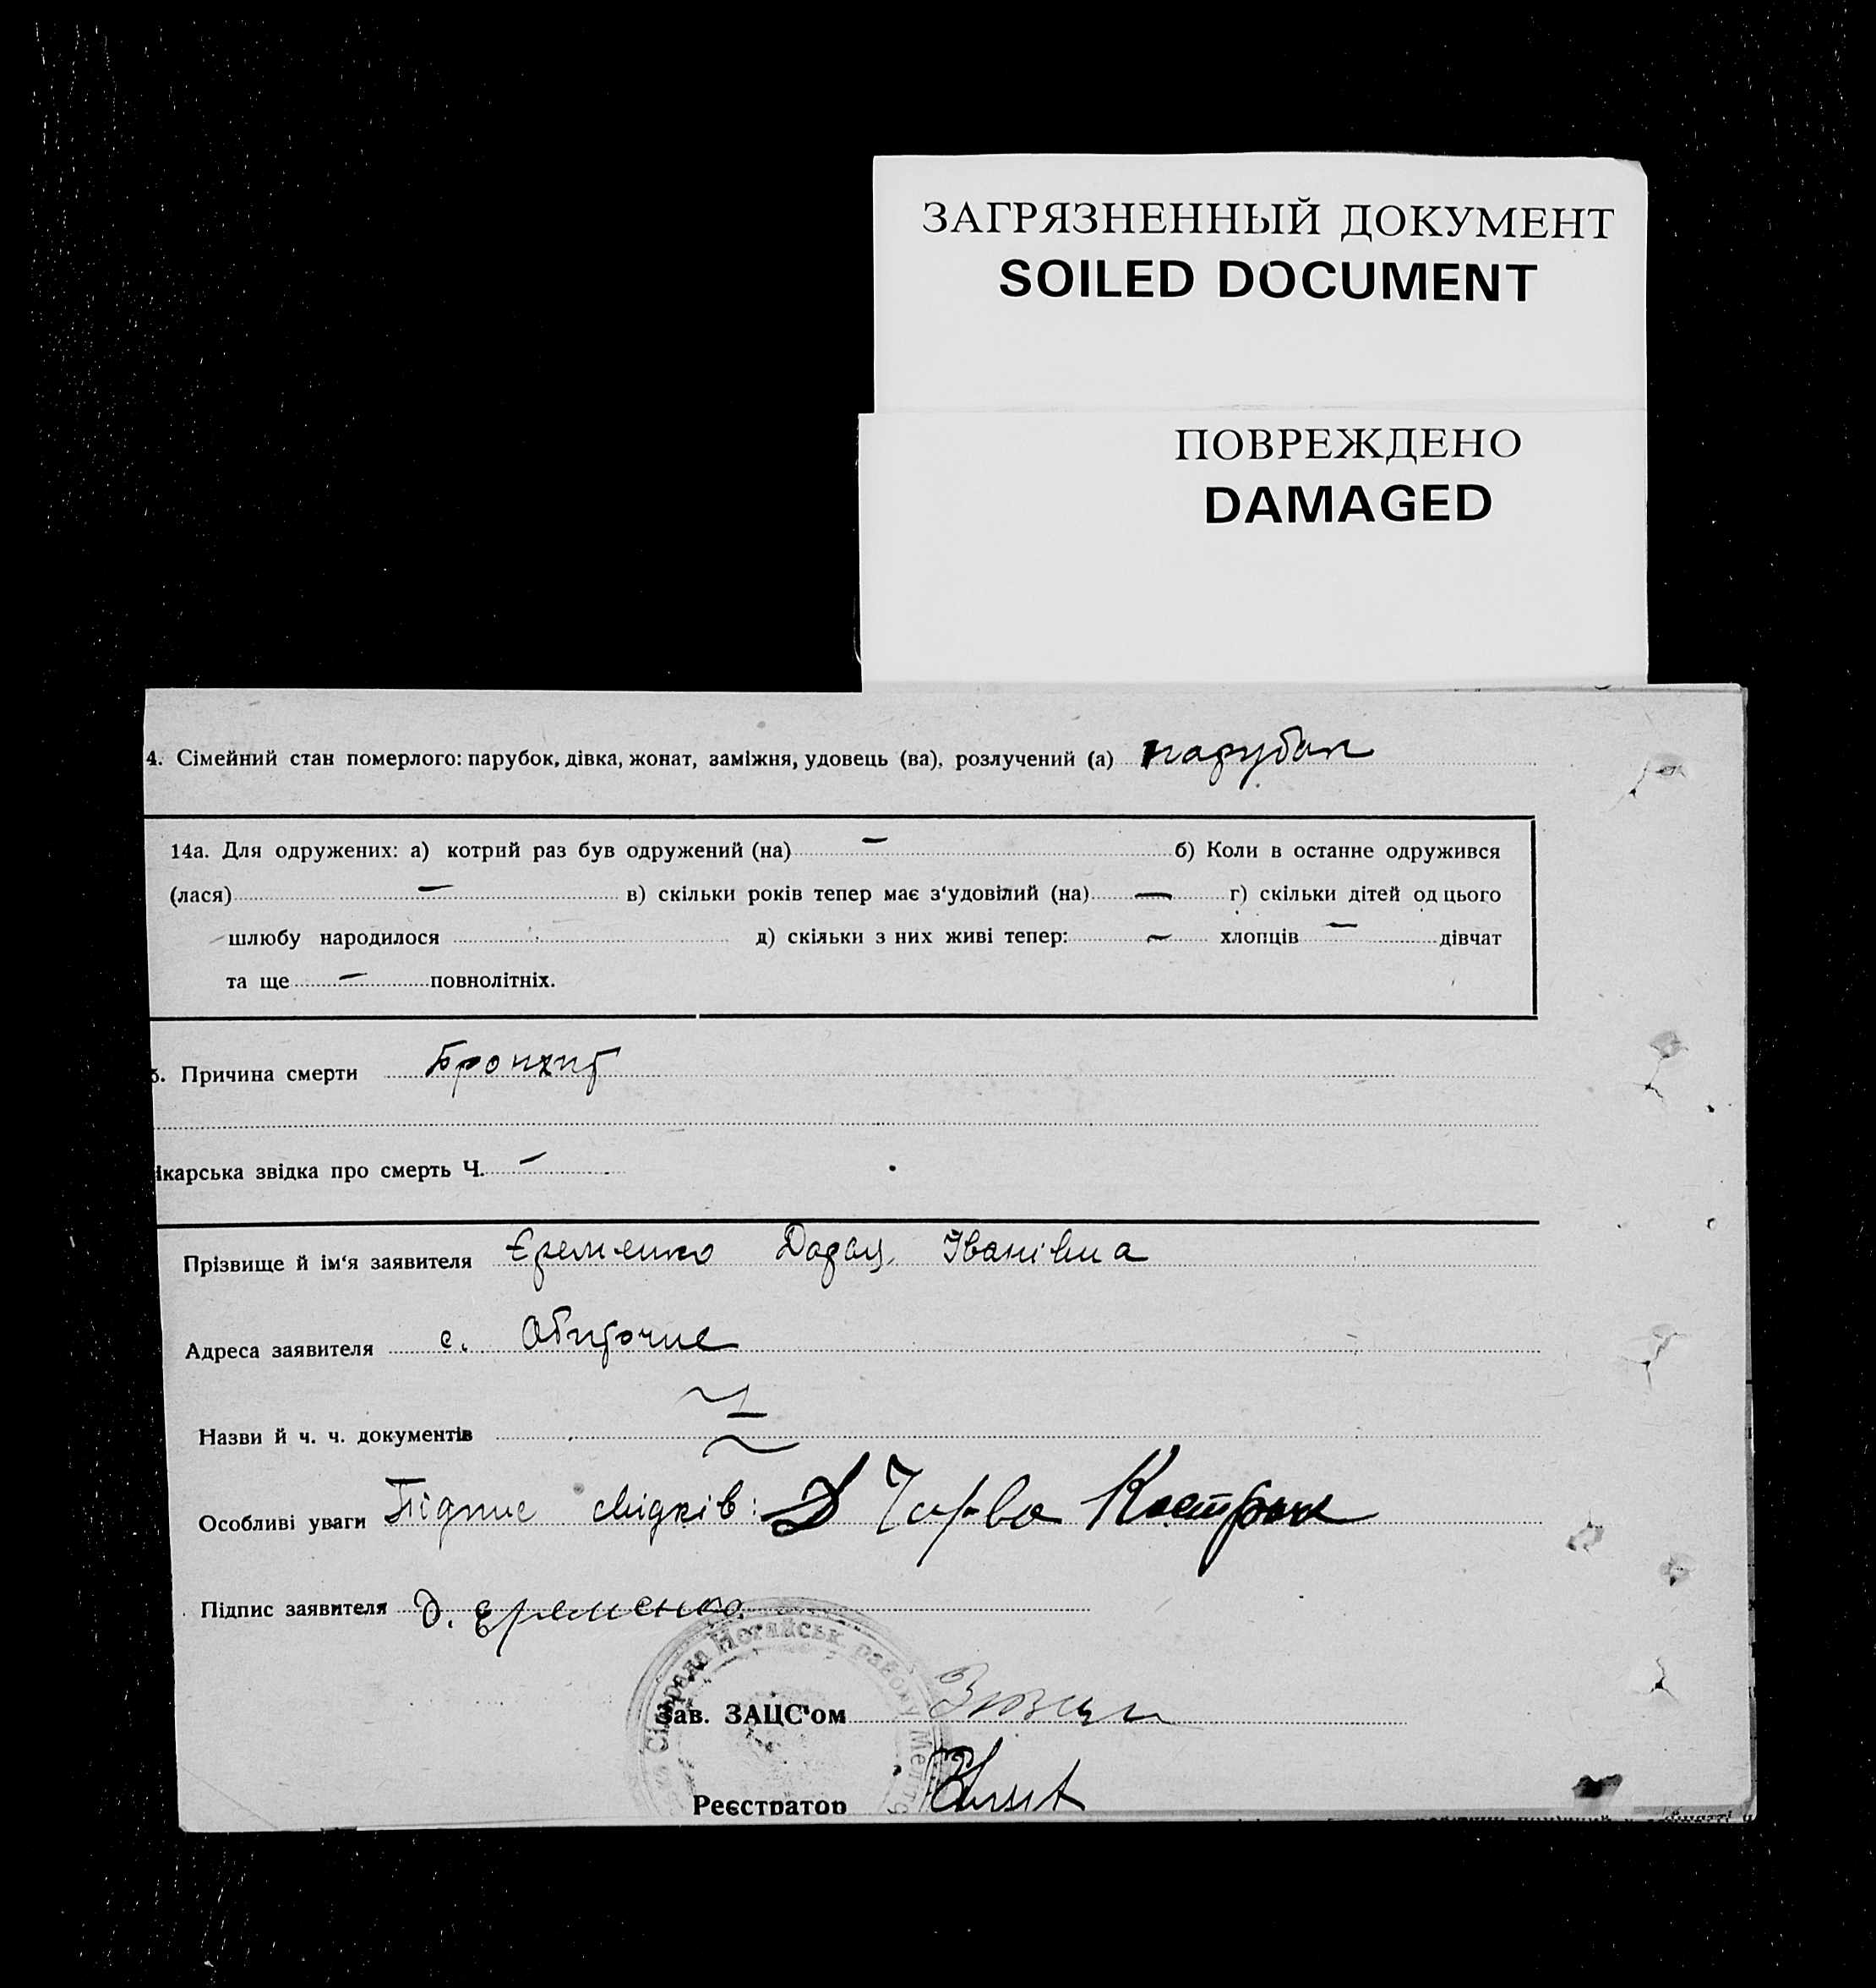 ЗАГРЯЗНЕННЫЙ ДОКУМЕНТ
SOILED DOCUMENT
ПОВРЕЖДЕНО
DAMAGED
4. Сімейний стан померлого: парубок, дівка, жонат, заміжня, удовець (ва), розлучений (а) парубок
14а. Для одружених: а) котрий раз був одружений (на) — б) Коли в останнє одружився
(лася) — в) скільки років тепер має з‘удовілий (на) — г) скільки дітей од цього
шлюбу народилося д) скільки з них живі тепер: — хлопців — дівчат
та ще — повнолітніх.
Причина смерти Бронхит
ікарська звідка про смерть Ч. —
Прізвище й ім‘я заявителя Єременко Іванівна
Адреса заявителя с. Обиточне
Назви й ч. ч. документів
Особливі уваги Підпис свідків:
Підпис заявителя Д. Єременко
Сільрада Ногайськ. району
Зав. ЗАЦС‘ом
Реєстратор